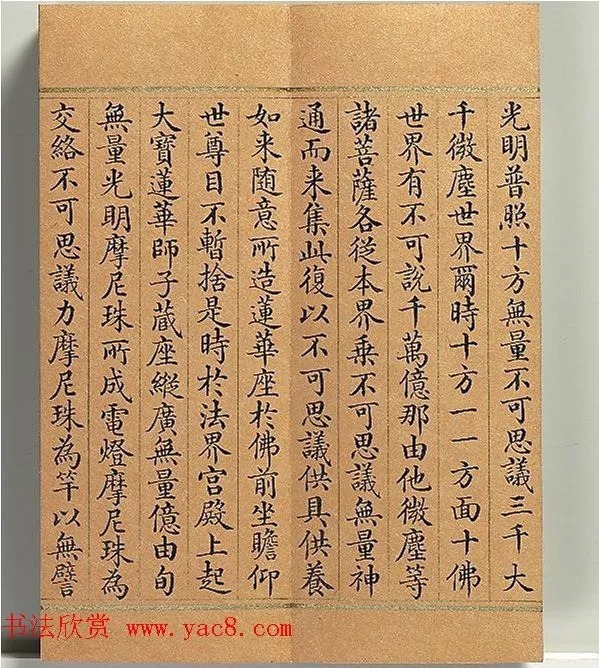 光明普照十方無量不可思議三千大
千微塵世界爾時十方一一方面十佛
世界有不可說千萬億那由他微塵等
諸菩薩各從本界乘不可思議無量神
通而来集此復以不可思議供具供養
如来随意所造蓮華座於佛前坐瞻仰
世尊目不暫捨是時於法界宫殿上起
大寶蓮華師子蔵座縱廣無量億由旬
無量光明摩尼珠所成電燈摩尼珠為
交絡不可思議力摩尼珠為竿以無譬
书法欣赏 www.yac8.com